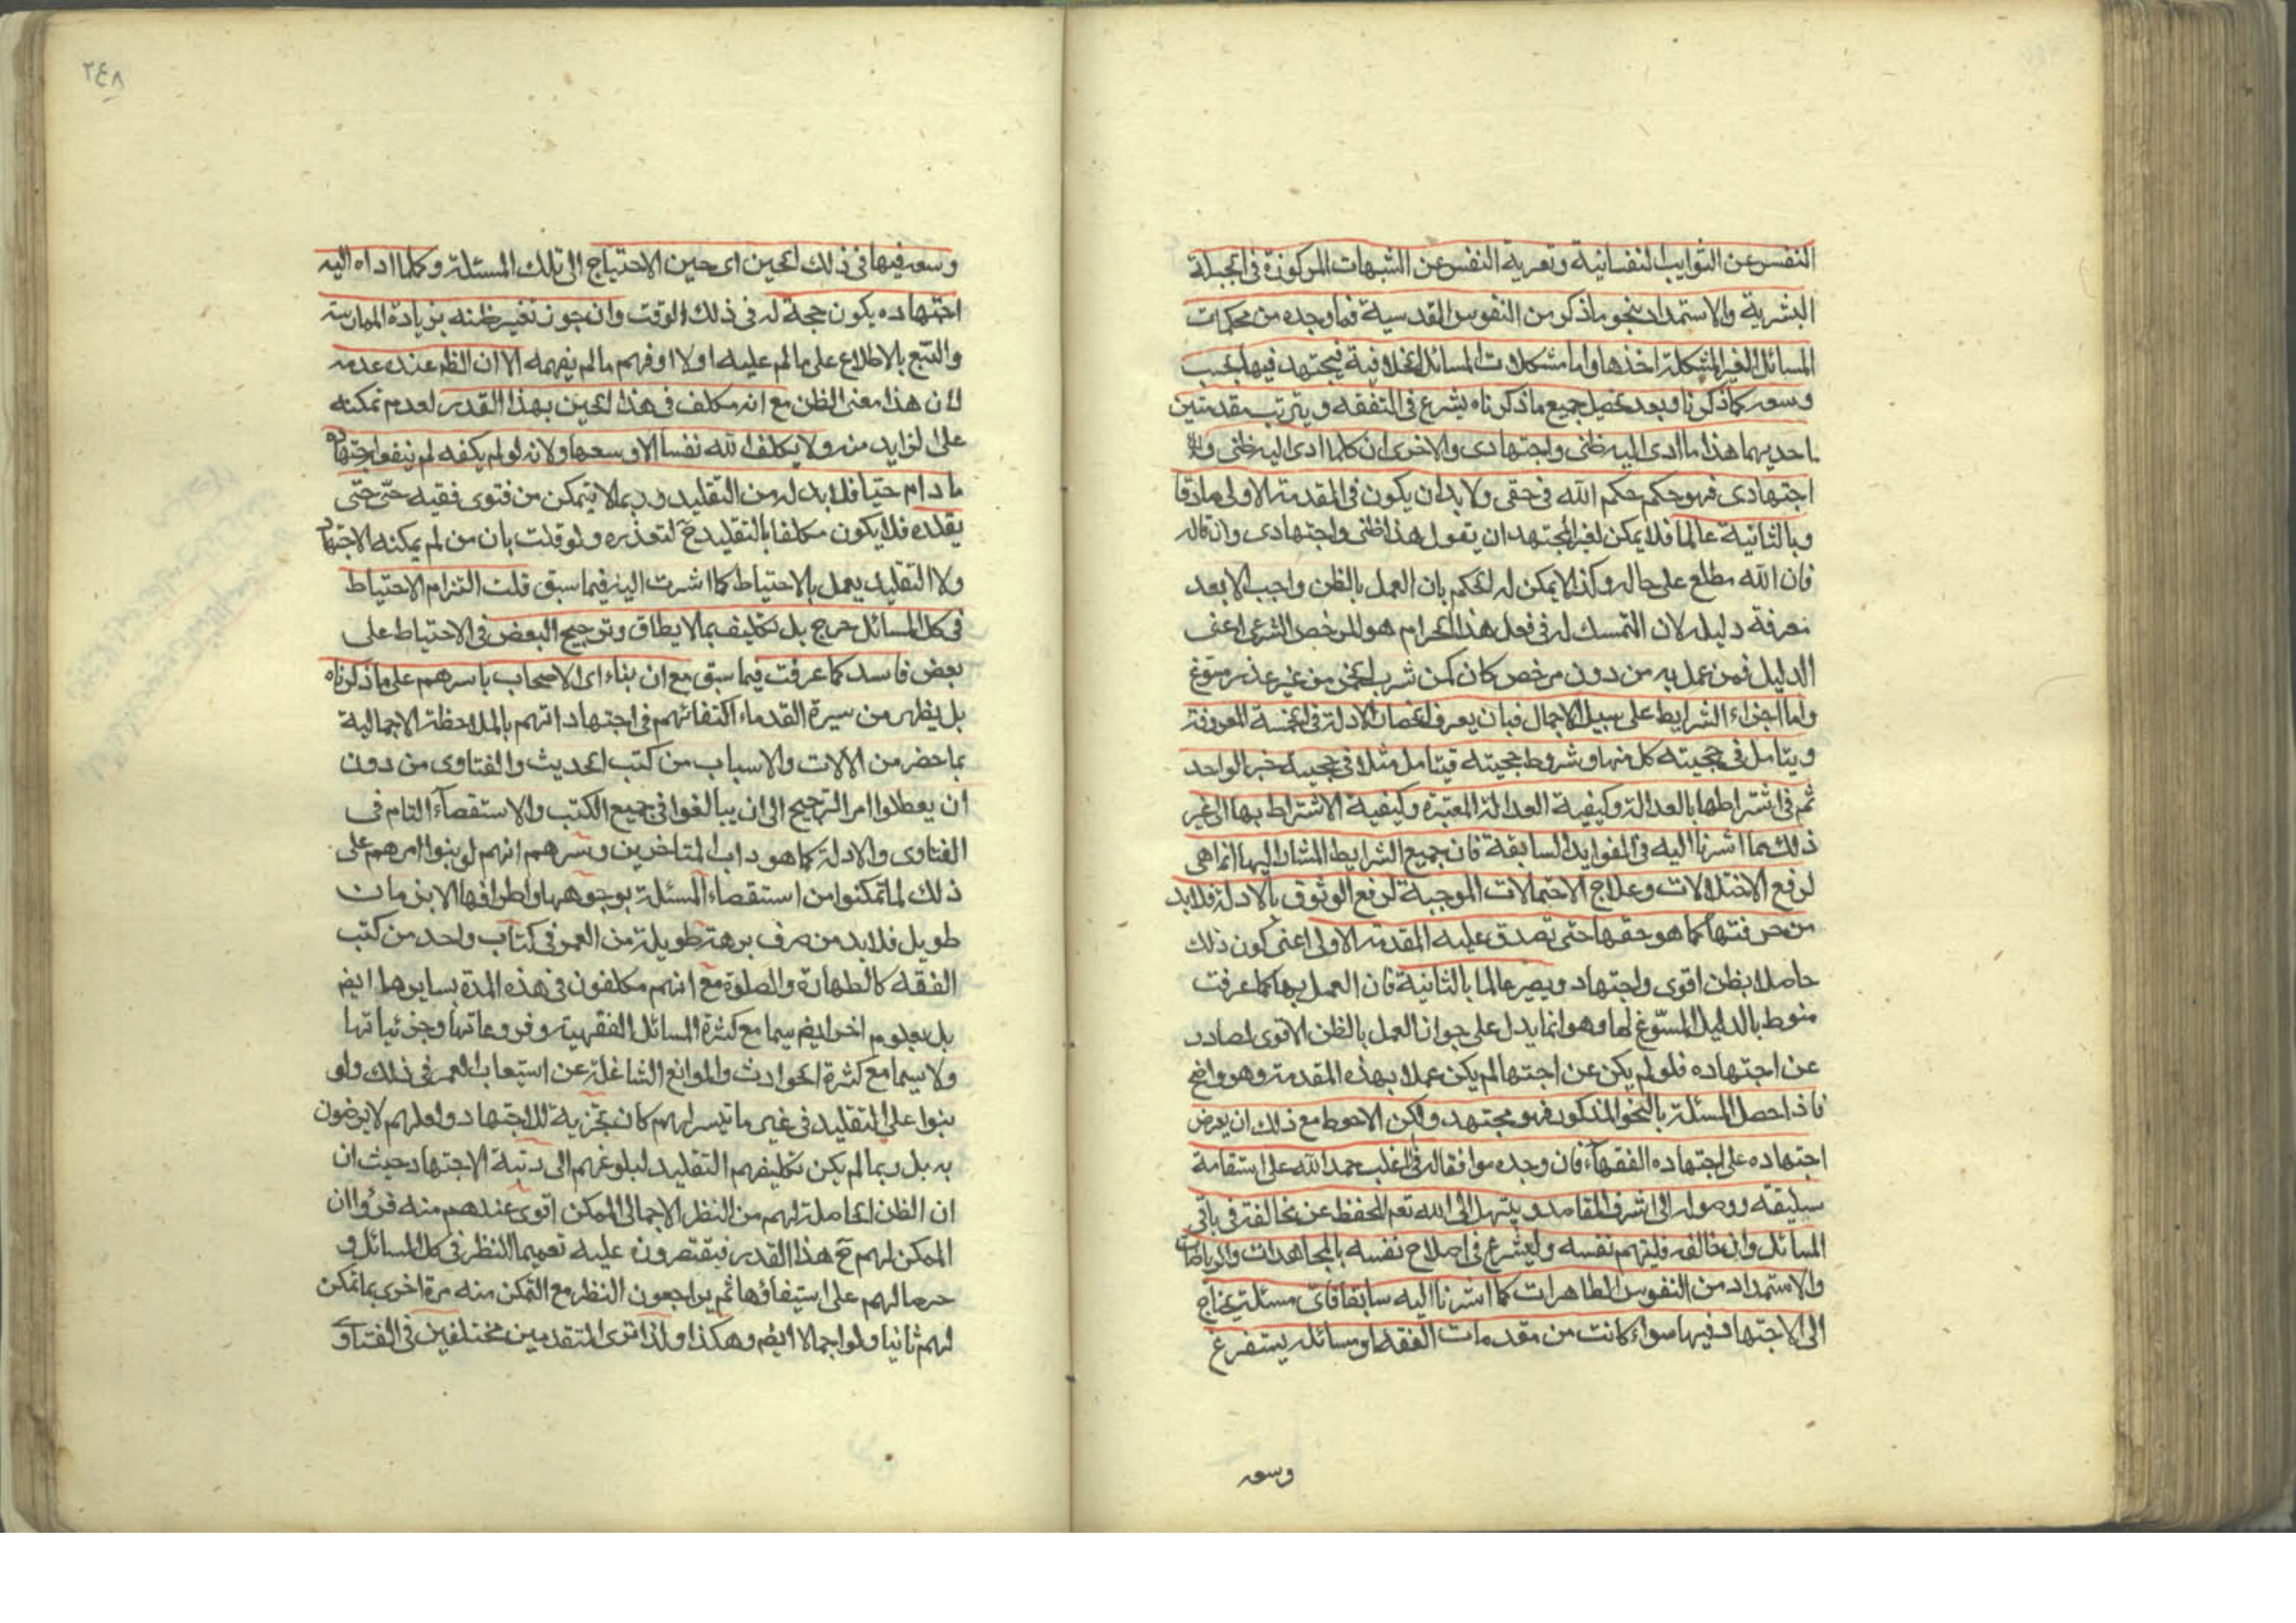 النفس عن الشوايب النفسانية وتعرية النفس عن الشبهات المركوزة فى الجبلة
البشرية والاستمداد بنحو ما ذكر من النفوس القدسية فما وجده من محكمات
المسائل الغير المشكلة اخذها واما مشكلات المسائل الخلافية فيجتهد فيها بحسب
وسعه كما ذكرنا وبعد تحصيل جميع ما ذكرناه يشرع فى التفقه ويترتب مقدمتين
احديهما هذا ما ادى اليه ظنى واجتهادى والاخرى ان كلما ادى اليه ظنى و
اجتهادى فهو حكم حكم الله فى حقى ولا بد ان يكون فى المقدمة الاولى صادقا
وبالثانية عالما فلا يمكن لغير المجتهد ان يقول هذا ظنى واجتهادى وان قاله
فان الله مطلع على حاله وكذا لا يمكن له الحكم بان العمل بالظن واجب الا بعد
معرفة دليله لان التمسك له فى فعل هذا الحرام هو المرخص الشرعى اعنى
الدليل فمن عمل به من دون مرخص كان كمن شرب الخمر من غير عذر مسوغ
واما اجزاء الشرايط على سبيل الاجمال فبان يعرف انحصار الادلة فى الخمسة المعروفة
ويتامل فى حجيته كل منها وشروط حجيته فيتامل مثلا فى حجية خبر الواحد
ثم فى اشتراطها بالعدالة وكيفية العدالة المعتبرة وكيفية الاشتراط بها الى غير
ذلك مما اشرنا اليه فى الفوايد السابقة فان جميع الشرايط المشار اليها انما هى
لرفع الاختلالات وعلاج الاحتمالات الموجبة لرفع الوثوق بالادلة فلا بد
من معرفتها كما هو حقها حتى تصدق عليه المقدمة الاولى اعنى كون ذلك
حاصلا بظن اقوى واجتهاد ويصير عالما بالثانية فان العمل بها كما عرفت
منوط بالدليل المسوّغ لها وهو انما يدل على جواز العمل بالظن الاقوى الصادر
عن اجتهاده فلو لم يكن عن اجتهاد لم يكن عملا بهذه المقدمة وهو واضح
فاذا حصل المسئلة بالنحو المذكور فهو مجتهد ولكن الاحوط مع ذلك ان يعرض
اجتهاده على اجتهاده الفقهاء فان وجده موافقا له فى الاغلب حمد الله على استقامة
سليقته ووصوله الى اشرف المقاصد ويبتهل الى الله تعم للحفظ عن مخالفته فى باقى
المسائل وان خالفه فليتهم نفسه وليشرع فى اصلاح نفسه بالمجاهدات والرياضات
والاستمداد من النفوس الطاهرات كما اشرنا اليه سابقا فاى مسئلة يحتاج
الى الاجتهاد فيها سواء كانت من مقدمات الفقه او مسائله يستفرغ
وسعه
٢٤٨
وسعه فيها فى ذلك الحين اى حين الاحتياج الى تلك المسئلة وكلما اداه اليه
اجتهاده يكون حجة له فى ذلك الوقت وان جوز تغيير ظنه بزيادة الممارسة
والتتبع بالاطلاع على ما لم عليه اولا او فهم ما لم يفهمه الا ان الظم عنده عدمه
لان هذا معنى الظن مع انه مكلف فى هذا الحين بهذا القدر لعدم تمكنه
على الزايد منه ولا يكلف الله نفسا الا وسعها ولانه لو لم يكفه لم ينفع اجتهاده
ما دام حيّا فلا بد له من التقليد وربما لا يتمكن من فتوى فقيه حىّ حتى
يقلده فلا يكون مكلفا بالتقليد ح لتعذره ولو قلت بان من لم يمكنه الاجتهاد
ولا التقليد يعمل بالاحتياط كما اشرت اليه فيما سبق قلت التزام الاحتياط
فى كل المسائل حرج بل تكليف بما لا يطاق وترجيح البعض فى الاحتياط على
بعض فاسد كما عرفت فيما سبق مع ان بناء اى الاصحاب باسرهم على ما ذكرناه
بل يظهر من سيرة القدماء اكتفائهم فى اجتهاداتهم بالملاحظة الاجمالية
بما حضر من الآلات والاسباب من كتب الحديث والفتاوى من دون
ان يعطلوا امر الترجيح الى ان يبالغوا فى جميع الكتب والاستقصاء التام فى
الفتاوى والادلة كما هو داب المتاخرين وسرهم انهم لو بنوا امرهم على
ذلك لما تمكنوا من استقصاء المسئلة بوجوهها واطرافها الا بزمان
طويل فلا بد من صرف برهة طويلة من العمر فى كتاب واحد من كتب
الفقه كالطهارة والصلوة مع انهم مكلفون فى هذه المدة بسايرها ايضم
بل بعلوم اخر ايضم سيما مع كثرة المسائل الفقهية وفروعاتها وجزئياتها
ولا سيما مع كثرة الحوادث والموانع الشاغلة عن استيعاب العمر فى ذلك ولو
بنوا على التقليد فى غير ما تيسر لهم كان تجزية للاجتهاد ولعلهم لا يرضون
به بل ربما لم يكن تكليفهم التقليد لبلوغهم الى رتبة الاجتهاد حيث ان
ان الظن الحاصلة لهم من النظر الاجمالى الممكن اقوى عندهم منه فرؤا ان
الممكن لهم ح هذا القدر فيقتصرون عليه تعميما للنظر فى كل المسائل و
حرصا لهم على استيفاؤها ثم يراجعون النظر مع التمكن منه مرة اخرى بما تمكن
لهم ثانيا ولو اجمالا ايضم وهكذا ولذا ترى المتقدمين مختلفين فى الفتاوى